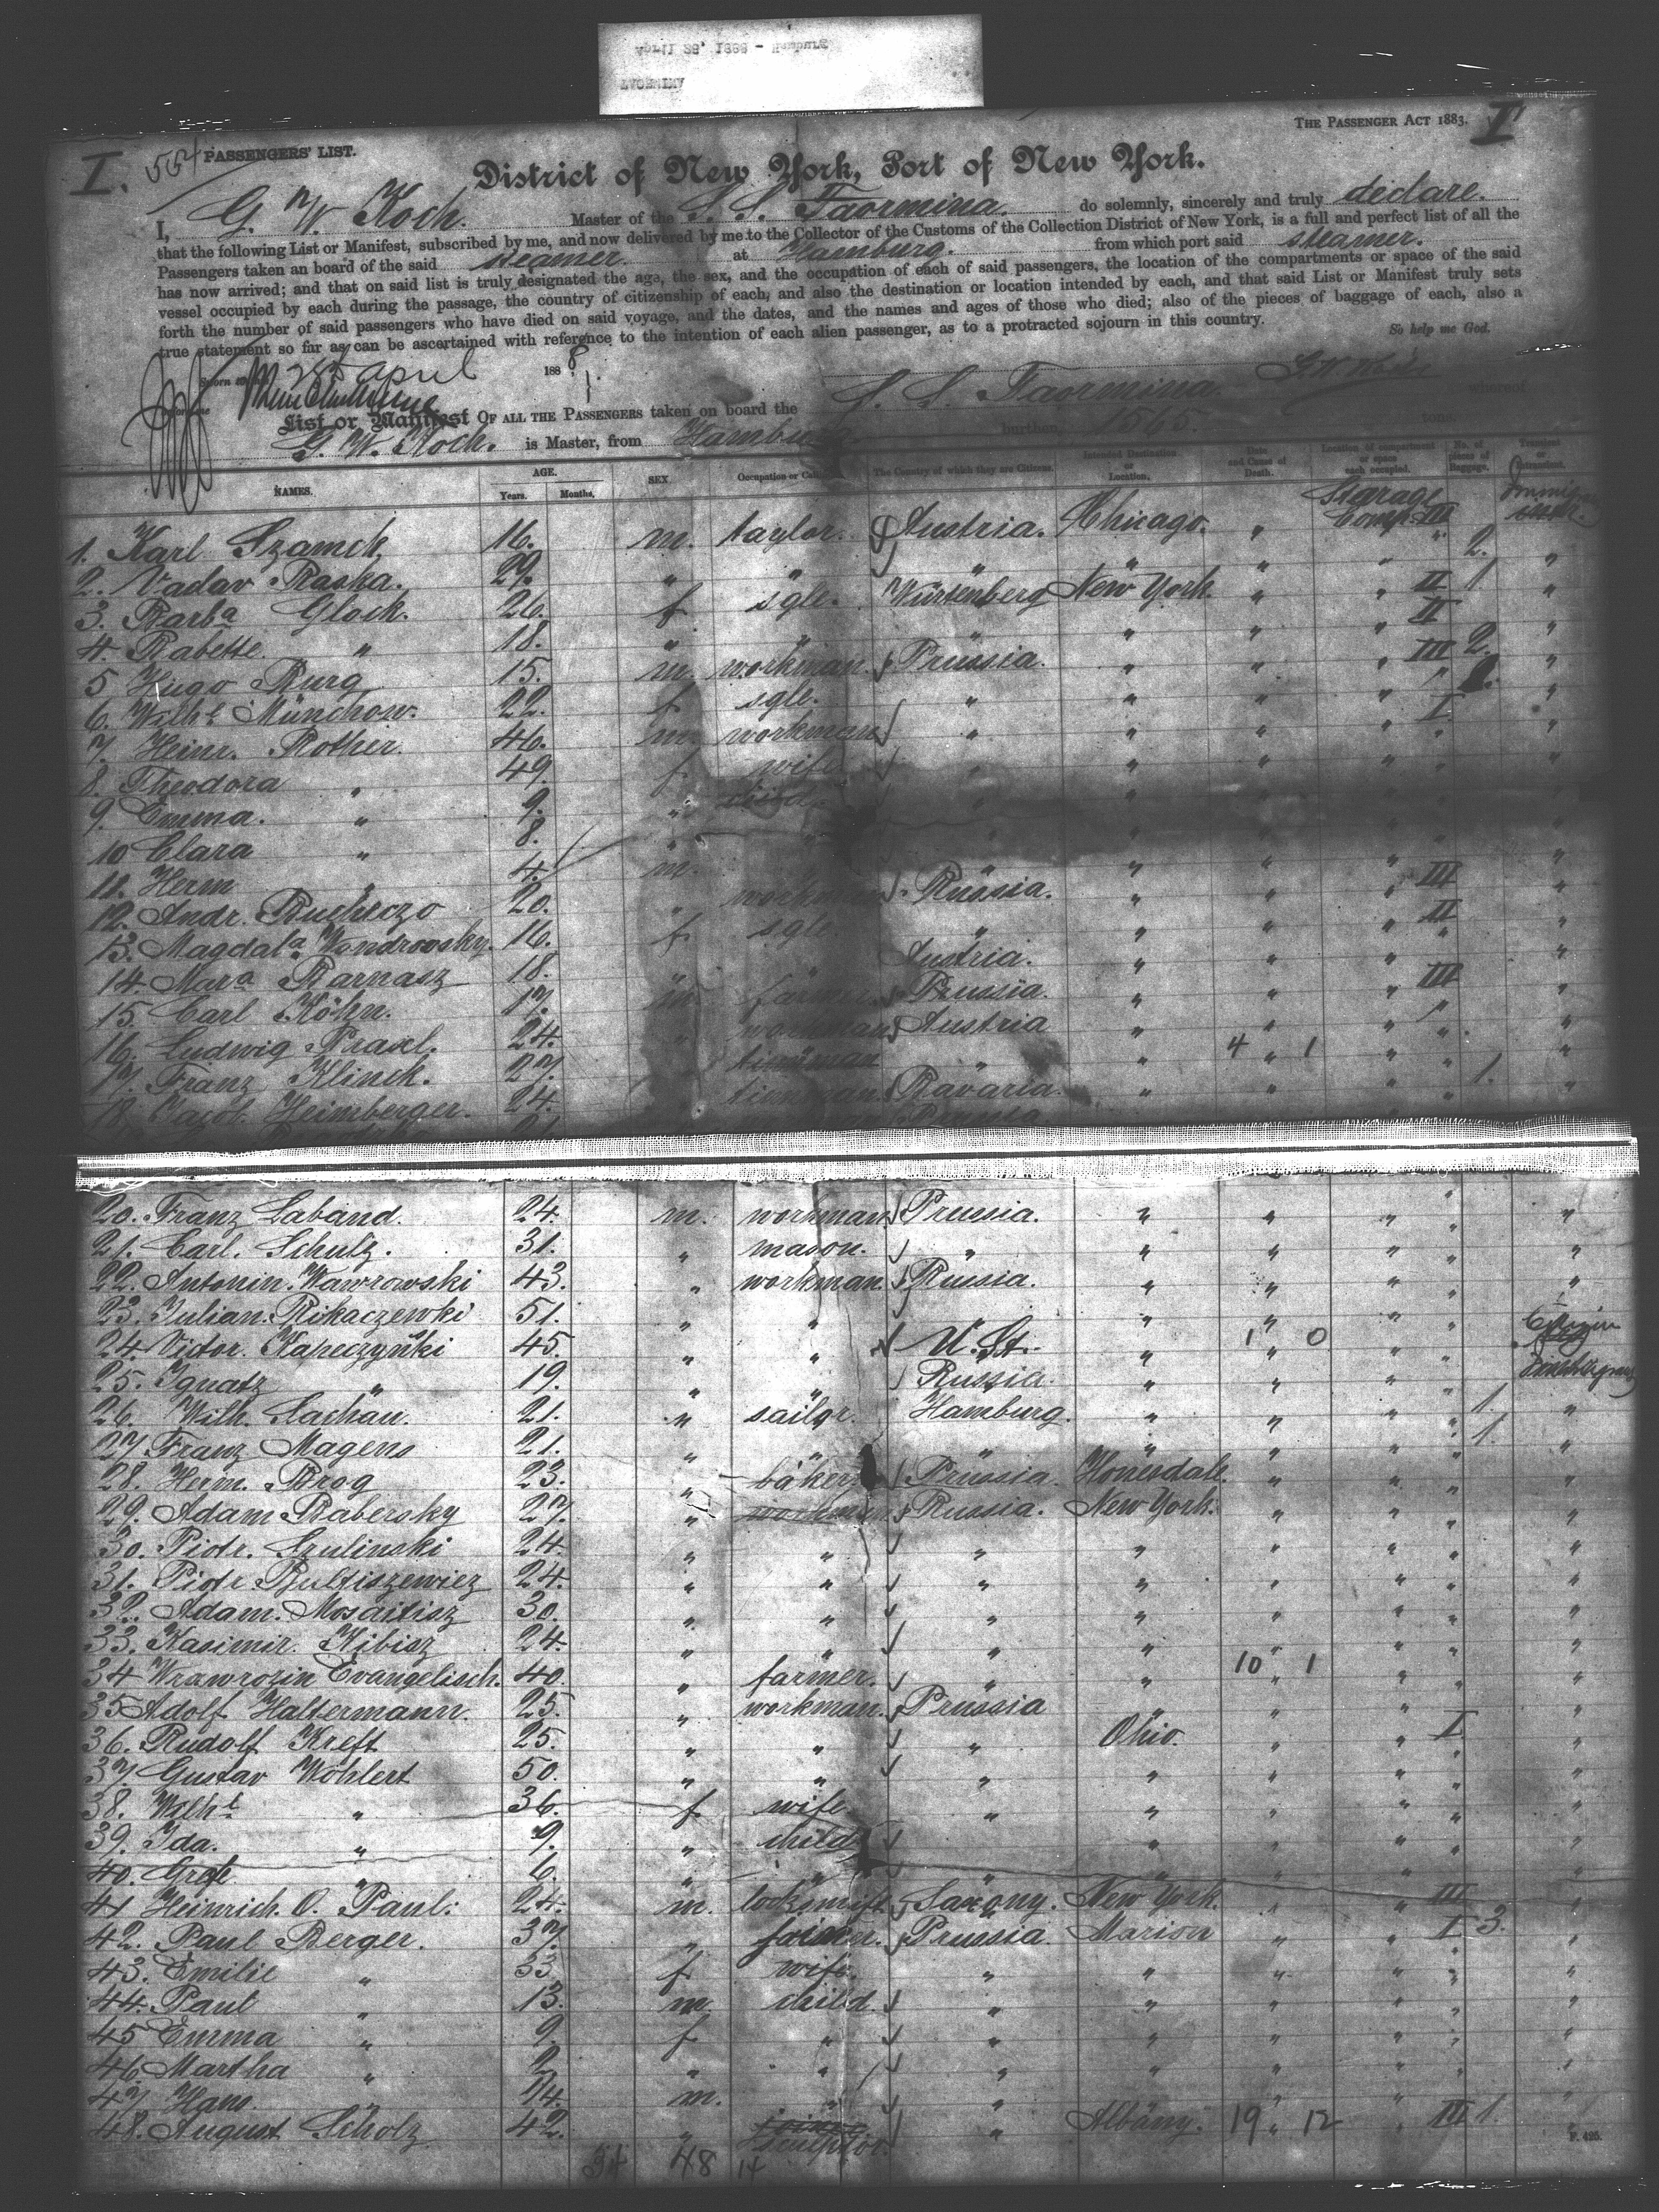 April 28, 1888 - Hamburg
I. 564 PASSENGERS' LIST. THE PASSENGER ACT 1883. I
District of New York, Port of New York.
I, G. W. Koch. Master of the S. S. Taormina. do solemnly, sincerely and truly declare.
that the following List or Manifest, subscribed by me, and now delivered by me to the Collector of the Customs of the Collection District of New York, is a full and perfect list of all the
Passengers taken an board of the said steamer. at Hamburg. from which port said steamer.
has now arrived; and that on said list is truly designated the age, the sex, and the occupation of each of said passengers, the location of the compartments or space of the said
vessel occupied by each during the passage, the country of citizenship of each, and also the destination or location intended by each, and that said List or Manifest truly sets
forth the number of said passengers who have died on said voyage, and the dates, and the names and ages of those who died; also of the pieces of baggage of each, also a
true statement so far as can be ascertained with reference to the intention of each alien passenger, as to a protracted sojourn in this country. So help me God.
Sworn 28 April 1888
List or Manifest OF ALL THE PASSENGERS taken on board the S. S. Taormina. whereof
G. W. Koch. is Master, from Hamburg burthen tons
NAMES. AGE. Years. Months. SEX. Occupation or The Country of which they are Citizens. Intended Destination or Location. Date and Cause of Death. Location of compartment or space each occupied. No. of pieces of Baggage. Transient or
1. Karl Szamek 16. m. taylor. Austria. Chicago. " Steerage Comp. III
2. Vaclav Raska. 29. " " " " " " 2. "
3. Barba Glock. 26. f. sgle. Würtenberg New York. " " II 1 "
4. Babette " 18. " " " " " " II "
5 Hugo Burg 15. m. workman. Prussia. " " " III 2. "
6. Wilhe Münchow. 22. f sgle. " " " " "
7. Heinr. Rother. 46. m. workman " " " " I "
8. Theodora " 49. f. wife " " " " "
9. Emma. " 9. " child " "
10 Clara " 8. " " " "
11. Herm " 4. m. " " "
12. Andr. 20. " workman Russia. " " " III "
13. Magdala Wondrowsky. 16. f sgle. " " " " II "
14. Mara Barnasz 18. " " Austria. " " " "
15. Carl Köhn. 17. m farmer Prussia. " " " III "
16. Ludwig Prasel. 24. " workman Austria " " " "
17. Franz Klinck. 27. " " 4 " 1 " "
18. Jacob. Heimberger. 24. Bavaria. " " 1. "
20. Franz Laband. 24. m. workman Prussia. " " " " "
21. Carl. Schulz. 31. " mason. " " " " " "
22. Antonin. Wawrowski 43. " workman. Russia. " " " " "
23. Julian. Rikaczewski 51. " " " " " " "
24. Victor. Kapeczyński 45. " " U. St. " 1 " 0 " " Citizen
25. Ignatz " 19. " " Russia. " " " "
26. Wilh. Lachau. 21. " sailor. Hamburg. " " " " 1. "
27. Franz Magens 21. " " " " " " " 1. "
28. Herm. Brog 23. " baker Prussia. Honesdale. " " " "
29. Adam Babersky 27. " workman Russia. New York. " " " "
30. Piotr. Szulinski 24. " " " " " " " "
31. Piotr Bultiszewicz 24. " " " " " " " "
32. Adam. Mosaitisz 30. " " " " " " " "
33. Kasimir. Kibisz 24. " " " " " " " "
34 Wrawrozin Evangelisch. 40. " farmer. " " 10 " 1 " " "
35 Adolf Haltermann. 25. " workman. Prussia " " " " "
36. Rudolf Kreft 25. " " " Ohio. " " I "
37. Gustav Wöhlert 50. " " " " " " " "
38. Wilhe " 36. f wife " " " " " "
39. Ida. " 9. " child " " " " "
40. Grete " 6. " " " " " " " "
41 Heinrich O. Paul. 24. m. locksmith. Saxony. New York. " " III "
42. Paul Berger. 37. " joiner. Prussia. Marion " " I 3. "
43. Emilie " 33. f wife. " " " " " "
44. Paul " 13. m. child. " " " " " "
45 Emma " 9. f " " " " " " "
46 Martha " 2 " " " " " " " "
47 Hans. " 1/4. m. " " " " " " "
48. August Scholz 42. " joiner sculptor. " Albany. 19 " 12 " III 1. "
34 48 14
F. 425.